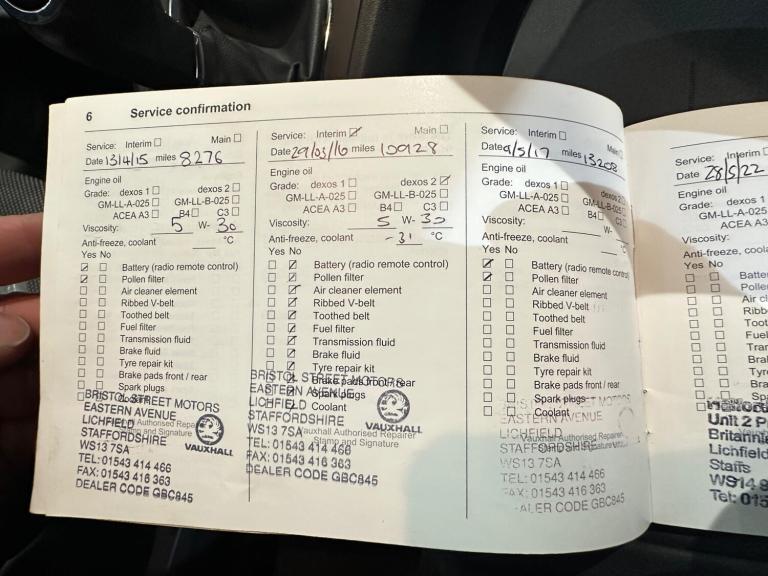 6 Service confirmation
Service: Interim Main
Date 13/4/15 miles 8276
Engine oil
Grade: dexos 1 dexos 2
GM-LL-A-025 GM-LL-B-025
ACEA A3 B4 C3
Viscosity: 5 W- 30
Anti-freeze, coolant °C
Yes No
Battery (radio remote control)
Pollen filter
Air cleaner element
Ribbed V-belt
Toothed belt
Fuel filter
Transmission fluid
Brake fluid
Tyre repair kit
Brake pads front / rear
Spark plugs
BRISTOL STREET MOTORS
EASTERN AVENUE
LICHFIELD
STAFFORDSHIRE
WS13 7SA
TEL: 01543 414 466
FAX: 01543 416 363
DEALER CODE GBC845
VAUXHALL
Service: Interim Main
Date 29/03/16 miles 10928
Engine oil
Grade: dexos 1 dexos 2
GM-LL-A-025 GM-LL-B-025
ACEA A3 B4 C3
Viscosity: 5 W- 30
Anti-freeze, coolant -31 °C
Yes No
Battery (radio remote control)
Pollen filter
Air cleaner element
Ribbed V-belt
Toothed belt
Fuel filter
Transmission fluid
Brake fluid
Tyre repair kit
Brake pads front / rear
Spark plugs
Coolant
BRISTOL STREET MOTORS
EASTERN AVENUE
LICHFIELD
STAFFORDSHIRE
WS13 7SA
TEL: 01543 414 466
FAX: 01543 416 363
DEALER CODE GBC845
VAUXHALL
Vauxhall Authorised Repairer
Stamp and Signature
Service: Interim Main
Date 9/5/17 miles 13208
Engine oil
Grade: dexos 1 dexos 2
GM-LL-A-025 GM-LL-B-025
ACEA A3 B4 C3
Viscosity: W-
Anti-freeze, coolant °C
Yes No
Battery (radio remote control)
Pollen filter
Air cleaner element
Ribbed V-belt
Toothed belt
Fuel filter
Transmission fluid
Brake fluid
Tyre repair kit
Brake pads front / rear
Spark plugs
Coolant
EASTERN AVENUE
LICHFIELD
STAFFORDSHIRE
WS13 7SA
TEL: 01543 414 466
FAX: 01543 416 363
DEALER CODE GBC845
Vauxhall Authorised Repairer
Service: Interim
Date 28/5/22
Engine oil
Grade: dexos 1
GM-LL-A-025
ACEA A3
Viscosity:
Anti-freeze, coolant
Yes No
Unit 2
Lichfield
Staffs
WS14
Tel: